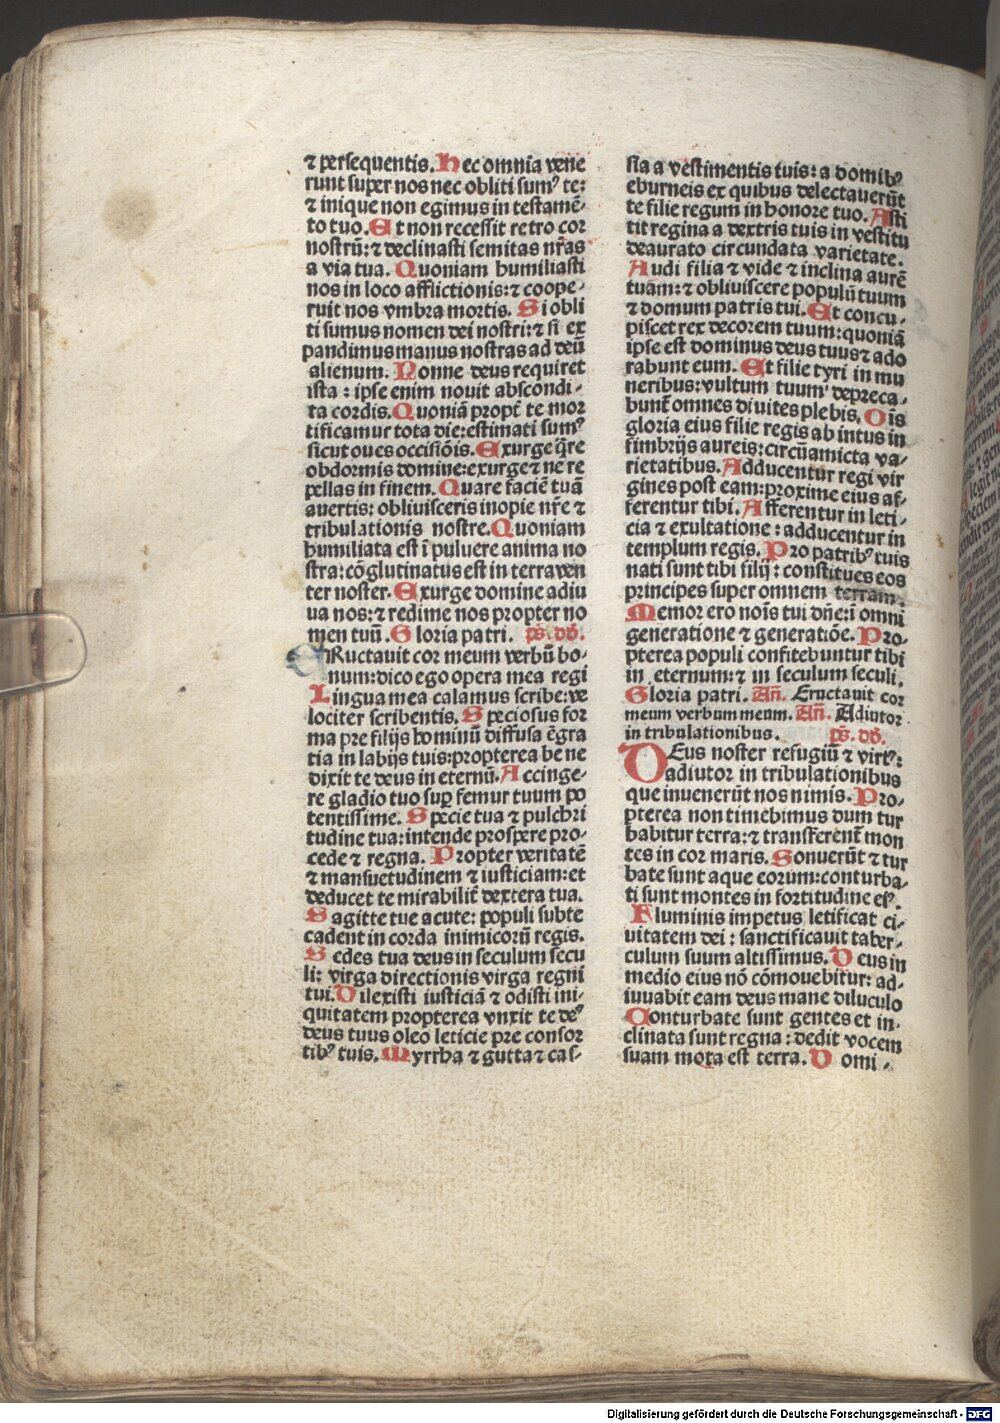 ⁊ persequentis. Hec omnia vene
runt super nos nec obliti sumꝰ te:
⁊ inique non egimus in testamē-
to tuo. Et non recessit retro cor
nostrū: ⁊ declinasti semitas nr̄as
a via tua. Quoniam humiliasti
nos in loco afflictionis: ⁊ coope-
ruit nos vmbra mortis. Si obli
ti sumus nomen dei nostri: ⁊ si ex
pandimus manus nostras ad deū
alienum. Nonne deus requiret
ista : ipse enim nouit abscondi-
ta cordis. Quoniā propt̄ te mor
tificamur tota die: estimati sumꝰ
sicut oues occisiōis. Exurge q̄re
obdormis domine: exurge ⁊ ne re
pellas in finem. Quare faciē tuā
auertis: obliuisceris inopie nr̄e ⁊
tribulationis nostre. Quoniam
humiliata est ī puluere anima no
stra: cōglutinatus est in terra ven
ter noster. Exurge domine adiu
ua nos: ⁊ redime nos propter no
men tuū. Gloria patri. ps̄. dd̄.
ERuctauit cor meum verbū bo-
num: dico ego opera mea regi
Lingua mea calamus scribe: ve
lociter scribentis. Speciosus for
ma pre filijs hominū diffusa ē gra
tia in labijs tuis: propterea bene
dixit te deus in eternū. Accinge-
re gladio tuo sup̄ femur tuum po
tentissime. Specie tua ⁊ pulchri
tudine tua: intende prospere pro-
cede ⁊ regna. Propter veritatē
⁊ mansuetudinem ⁊ iusticiam: et
deducet te mirabilit̄ dextera tua.
Sagitte tue acute: populi subte
cadent in corda inimicorū regis.
Sedes tua deus in seculum secu
li: virga directionis virga regni
tui. Dilexisti iusticiā ⁊ odisti ini-
quitatem propterea vnxit te deꝰ
deus tuus oleo leticie pre consor
tibꝰ tuis. Myrrha ⁊ gutta ⁊ cas-
sia a vestimentis tuis: a domibꝰ
eburneis ex quibus delectauerūt
te filie regum in honore tuo. Asti
tit regina a dextris tuis in vestitu
deaurato circundata varietate.
Audi filia ⁊ vide ⁊ inclina aurē
tuam: ⁊ obliuiscere populū tuum
⁊ domum patris tui. Et concu-
piscet rex decorem tuum: quoniā
ipse est dominus deus tuus ⁊ ado
rabunt eum. Et filie tyri in mu
neribus: vultum tuum depreca-
bunt̄ omnes diuites plebis. Oīs
gloria eius filie regis ab intus in
fimbrijs aureis: circūamicta va-
rietatibus. Adducentur regi vir
gines post eam: proxime eius af-
ferentur tibi. Afferentur in leti-
cia ⁊ exultatione : adducentur in
templum regis. Pro patribꝰ tuis
nati sunt tibi filij : constitues eos
principes super omnem terram.
Memor ero noīs tui dn̄e: ī omni
generatione ⁊ generatiōe. Pro-
pterea populi confitebuntur tibi
in eternum: ⁊ in seculum seculi.
Gloria patri. Añ. Eructauit cor
meum verbum meum. Añ. Adiutor
in tribulationibus. ps̄. dd̄.
DEus noster refugiū ⁊ virtꝰ:
adiutor in tribulationibus
que inuenerūt nos nimis. Pro-
pterea non timebimus dum tur
babitur terra: ⁊ transferent̄ mon
tes in cor maris. Sonuerūt ⁊ tur
bate sunt aque eorum: conturba-
ti sunt montes in fortitudine eiꝰ.
Fluminis impetus letificat ci-
uitatem dei : sanctificauit taber-
culum suum altissimus. Deus in
medio eius nō cōmouebitur: ad-
iuuabit eam deus mane diluculo
Conturbate sunt gentes et in-
clinata sunt regna : dedit vocem
suam mota est terra. Domi-
Digitalisierung gefördert durch die Deutsche Forschungsgemeinschaft - DFG